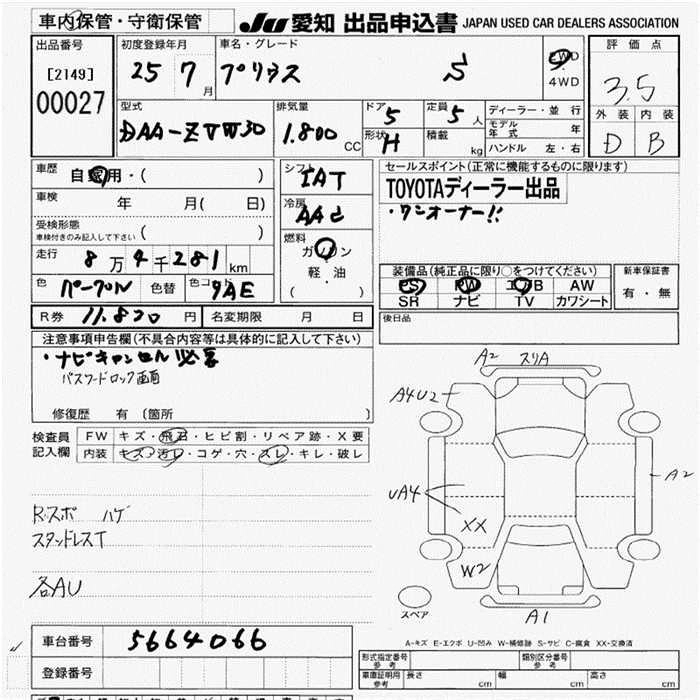 車内保管・守衛保管
JU 愛知 出品申込書 JAPAN USED CAR DEALERS ASSOCIATION
出品番号 [2149] 00027
初度登録年月 25 7月
車名・グレード プリウス S
2WD・4WD
評価点 3.5
外装 内装
D B
型式 DAA-ZVW30
排気量 1.800 CC
ドア 5 形状 H
定員 5人 積載 kg
ディーラー・並行
モデル年式 年
ハンドル 左・右
車歴 自家用・( )
車検 年 月( 日)
受検形態 車検付きのみ記入して下さい ( )
走行 8万4千281km
色 パープル 色替 色コード 9AE
R券 11.820円 名変期限 月 日
シフト IAT
冷房 AAC
燃料 ガソリン
軽・油
( )
セールスポイント(正常に機能するものに限ります)
TOYOTAディーラー出品
・ワンオーナー!!
装備品(純正品に限り○をつけてください)
PS PW エアB AW
SR ナビ TV カワシート
新車保証書
有・無
後日品
注意事項申告欄(不具合内容等は具体的に記入して下さい)
・ナビキャンセル必要
パスワードロック画面
修復歴 有 (箇所 )
検査員記入欄
FW キズ・飛石・ヒビ割・リペア跡・X要
内装 キズ・汚レ・コゲ・穴・スレ・キレ・破レ
R.スポ ハゲ
スタッドレスT
各AU
A2 スリA
A4U2
A2
UA4
XX
W2
A1
スペア
A-キズ E-エクボ U-凹み W-補修跡 S-サビ C-腐食 XX-交換済
車台番号 5664066
登録番号
形式指定番号 参考
類別区分番号 参考
車庫証明用 参考 長さ cm 幅 cm 高さ cm